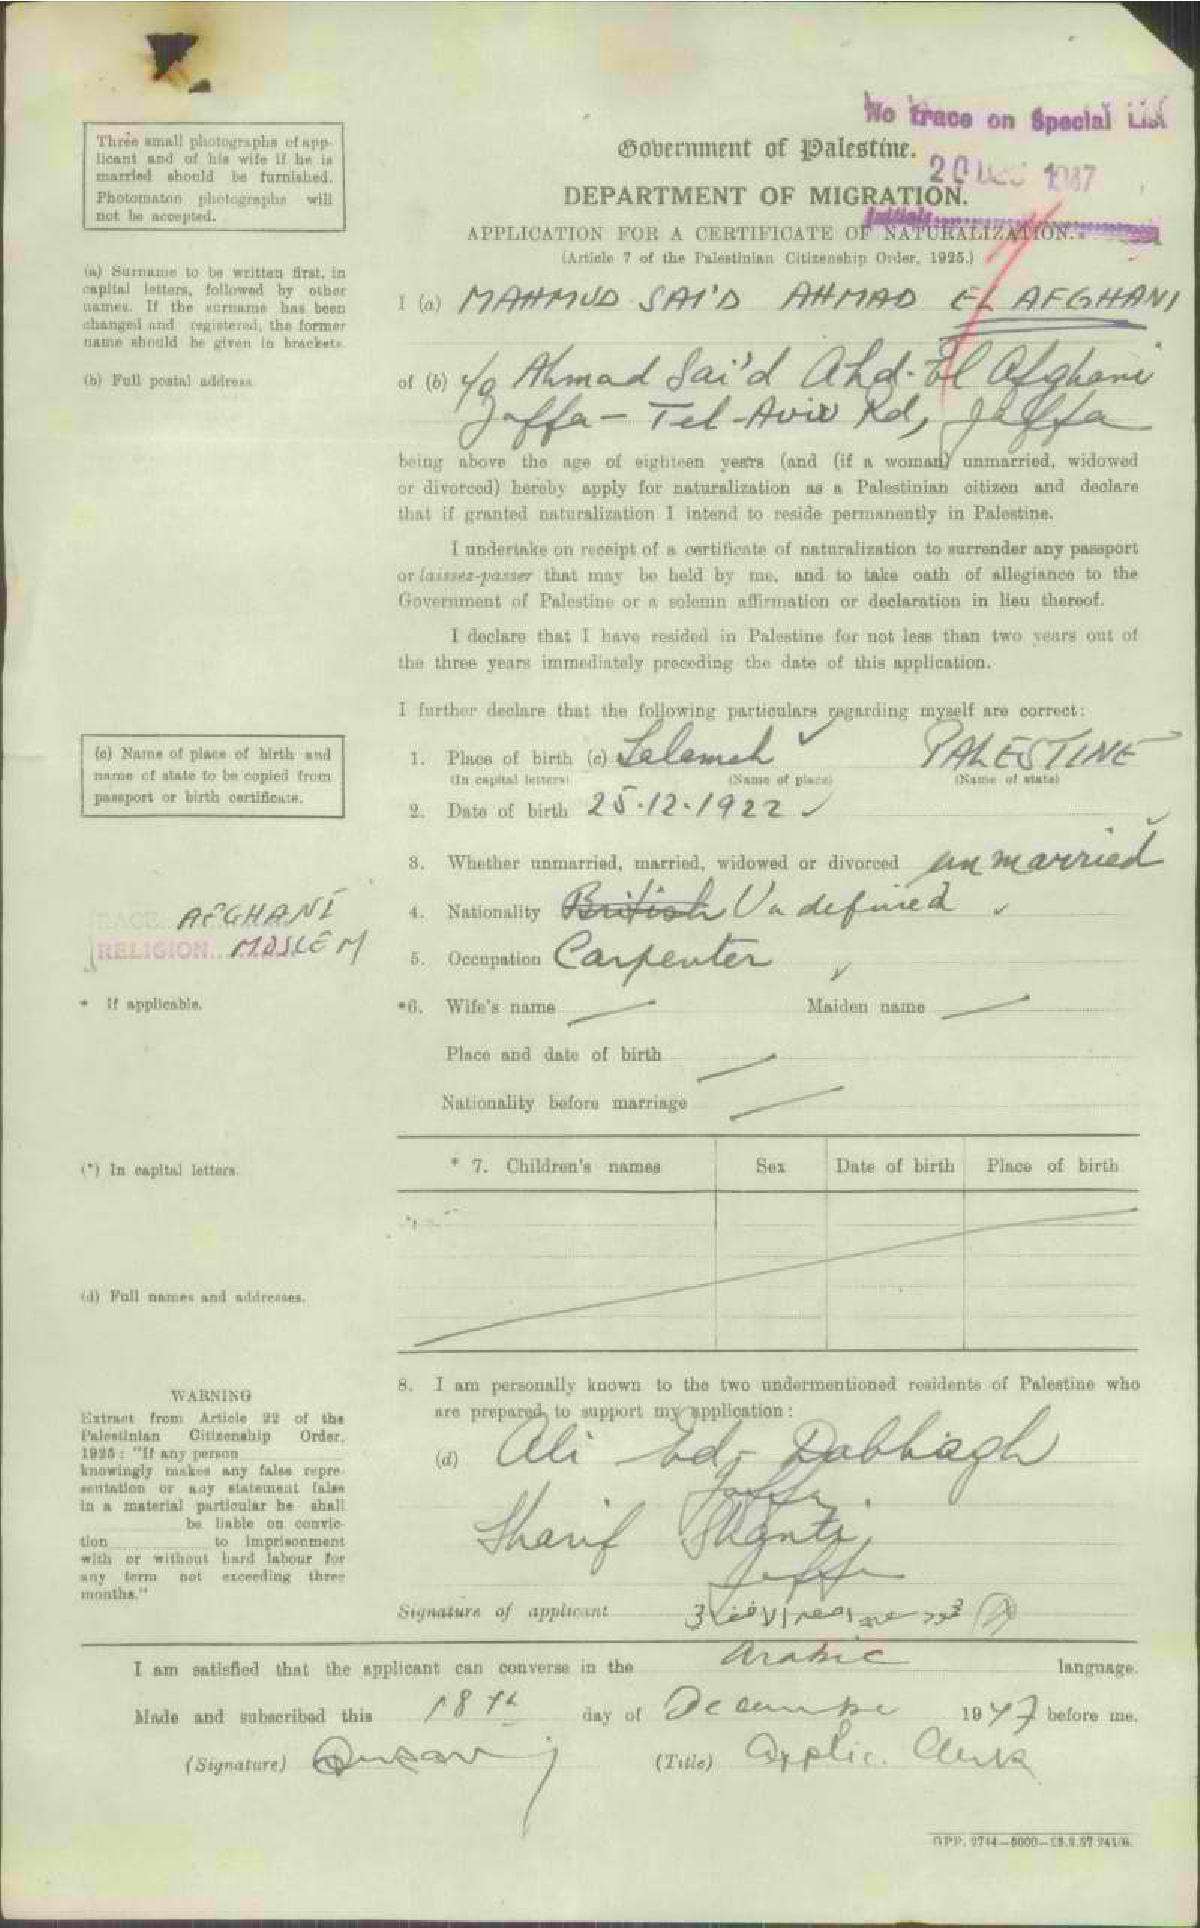 No trace on Special List
Government of Palestine.
20 DEC 1947
DEPARTMENT OF MIGRATION.
Initials
APPLICATION FOR A CERTIFICATE OF NATURALIZATION.
(Article 7 of the Palestinian Citizenship Order, 1925.)
Three small photographs of app-
licant and of his wife if he is
married should be furnished.
Photomaton photographs will
not be accepted.
(a) Surname to be written first, in
capital letters, followed by other
names. If the surname has been
changed and registered, the former
name should be given in brackets.
I (a) MAHMUD SAI'D AHMAD EL AFGHANI
(b) Full postal address.
of (b) c/o Ahmad Sai'd Ahd. El Afghani
Jaffa - Tel-Aviv Rd, Jaffa
being above the age of eighteen years (and (if a woman) unmarried, widowed
or divorced) hereby apply for naturalization as a Palestinian citizen and declare
that if granted naturalization I intend to reside permanently in Palestine.
I undertake on receipt of a certificate of naturalization to surrender any passport
or laissez-passer that may be held by me, and to take oath of allegiance to the
Government of Palestine or a solemn affirmation or declaration in lieu thereof.
I declare that I have resided in Palestine for not less than two years out of
the three years immediately preceding the date of this application.
I further declare that the following particulars regarding myself are correct:
(c) Name of place of birth and
name of state to be copied from
passport or birth certificate.
1. Place of birth (c) Salameh PALESTINE
(In capital letters) (Name of place) (Name of state)
2. Date of birth 25.12.1922
3. Whether unmarried, married, widowed or divorced unmarried
RACE AFGHANI
RELIGION MOSLEM
4. Nationality British Undefined
5. Occupation Carpenter
* If applicable.
*6. Wife's name Maiden name
Place and date of birth
Nationality before marriage
(*) In capital letters.
* 7. Children's names Sex Date of birth Place of birth
(d) Full names and addresses.
8. I am personally known to the two undermentioned residents of Palestine who
are prepared to support my application:
(d) Ali Ed. Dabbagh
Jaffa
Sharif Shanti
Jaffa
WARNING
Extract from Article 22 of the
Palestinian Citizenship Order,
1925: "If any person
knowingly makes any false repre-
sentation or any statement false
in a material particular he shall
be liable on convic-
tion to imprisonment
with or without hard labour for
any term not exceeding three
months."
Signature of applicant
I am satisfied that the applicant can converse in the Arabic language.
Made and subscribed this 18th day of December 1947 before me.
(Signature) (Title) Applic. Clerk
GPP. 2744—5000—